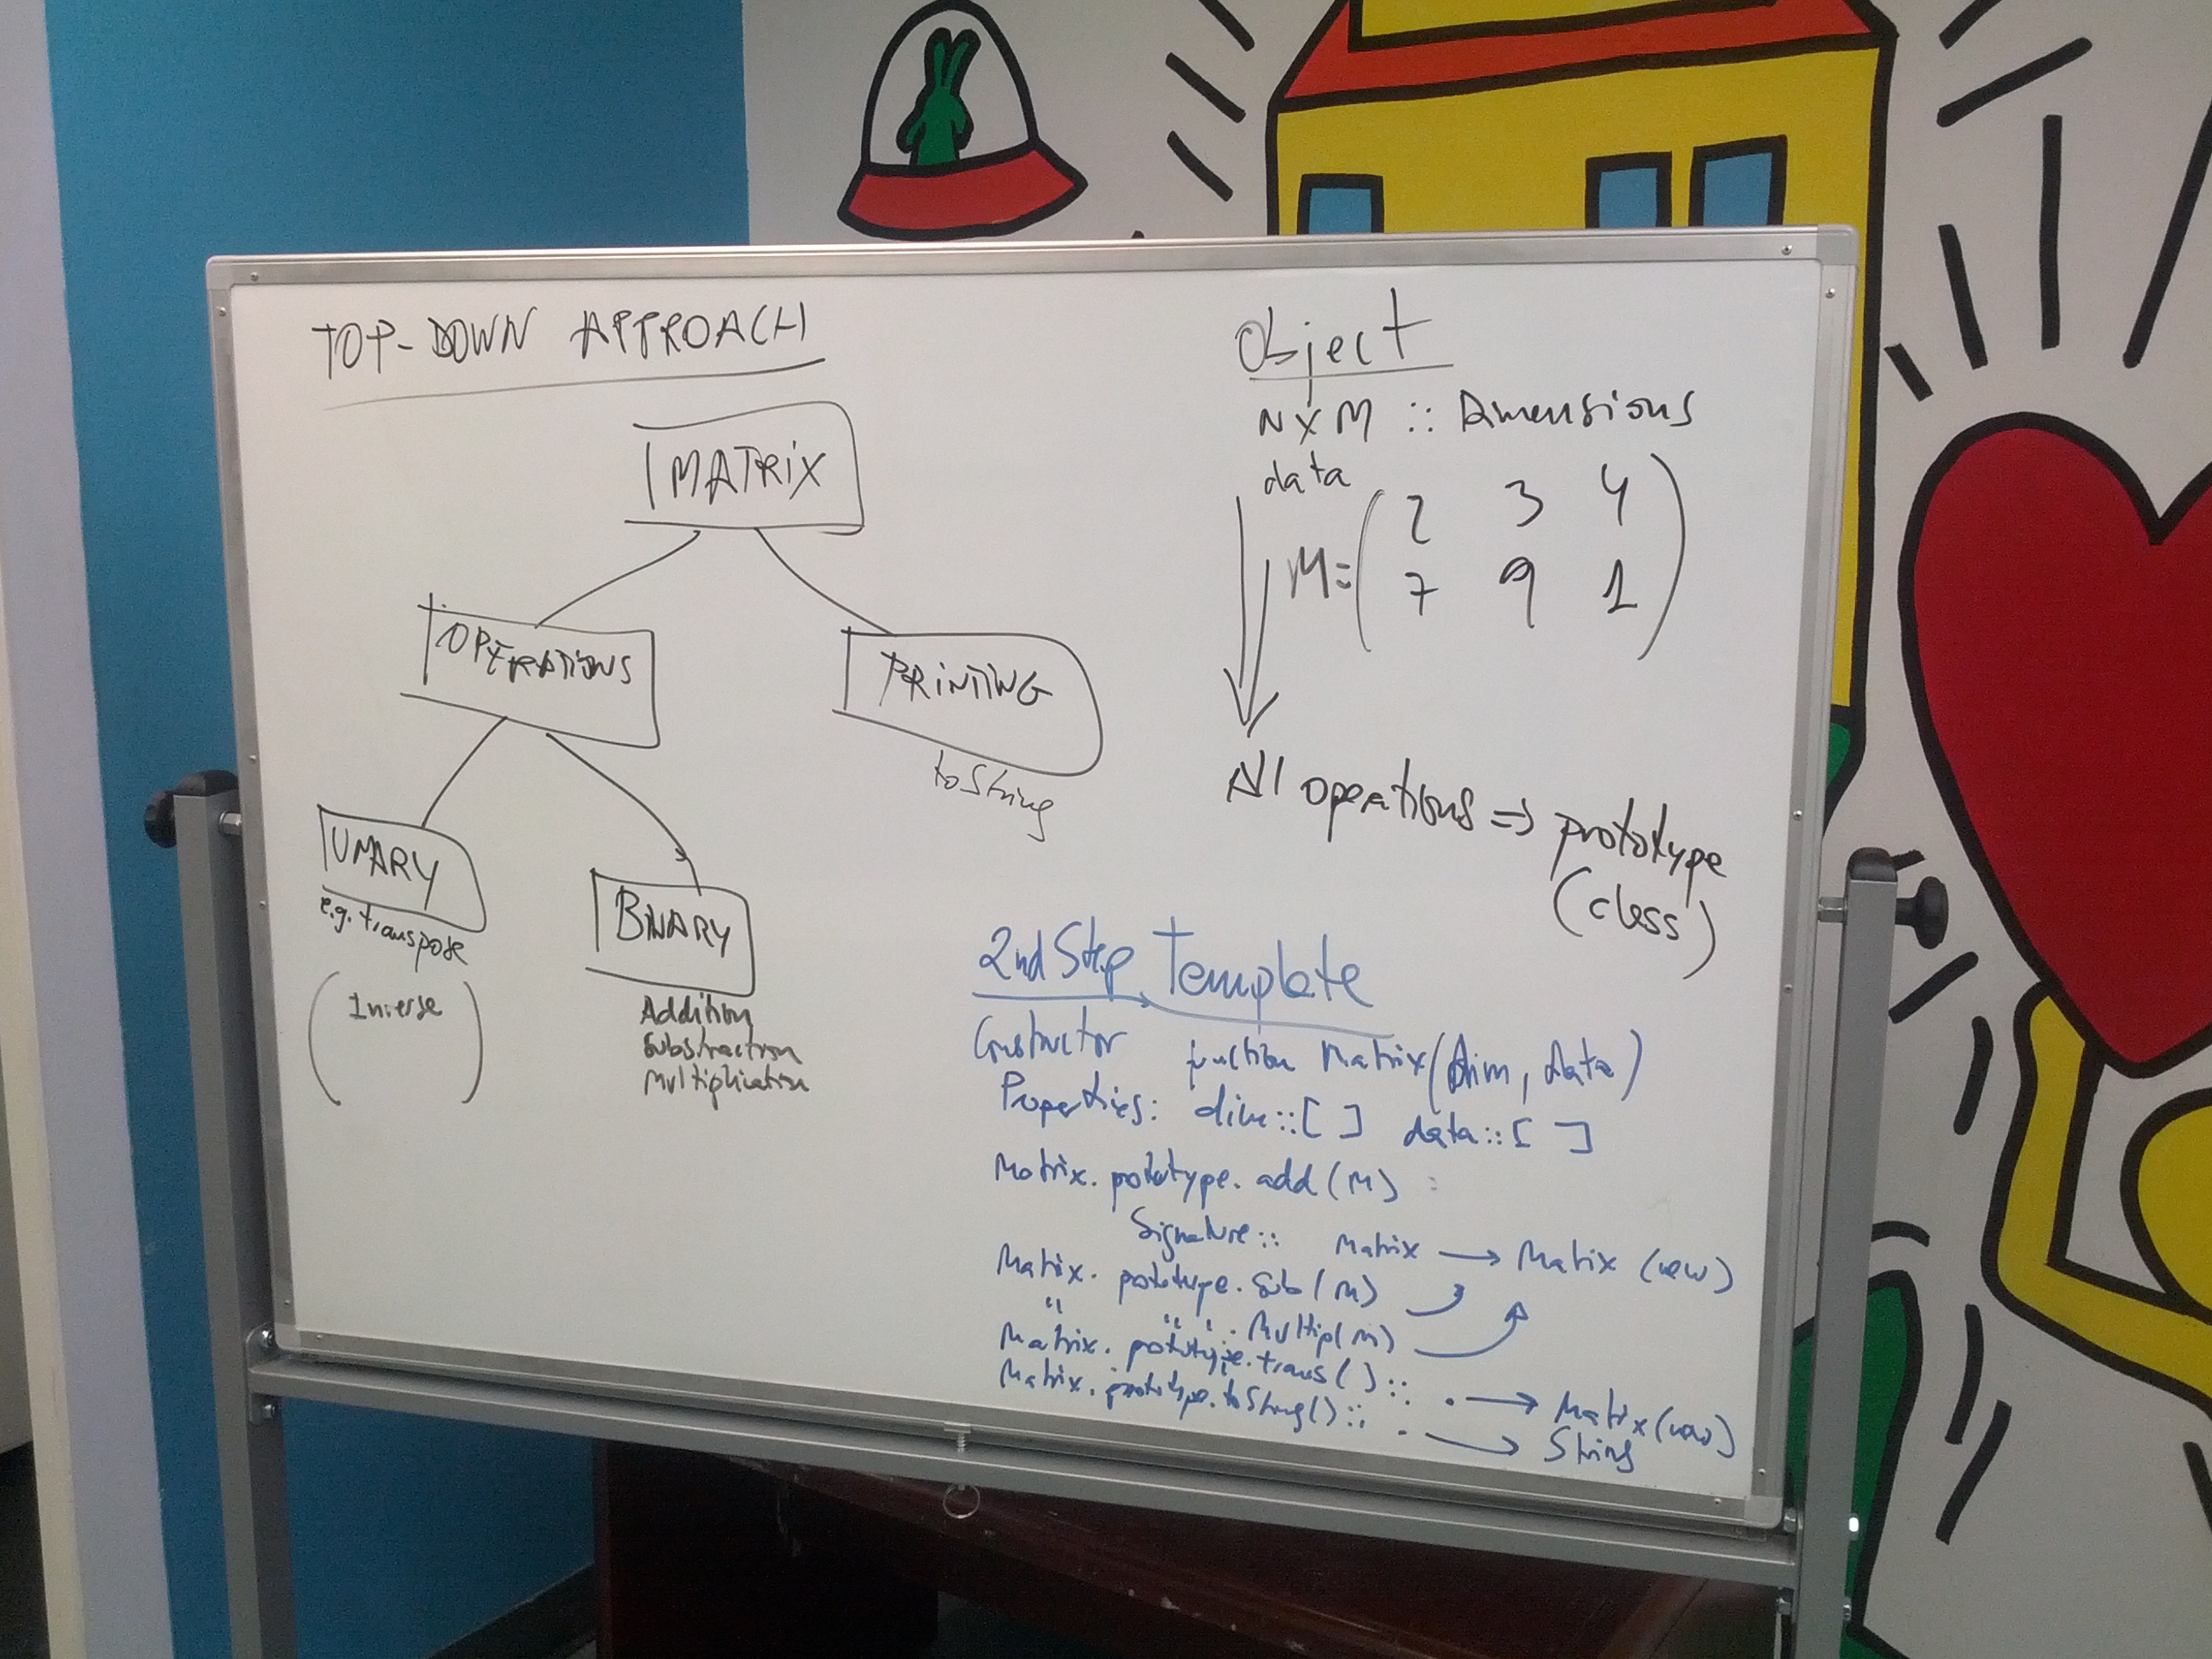 TOP-DOWN APPROACH
MATRIX
OPERATIONS
PRINTING
toString
UNARY
e.g. transpose
(Inverse)
BINARY
Addition
Substraction
Multiplication
Object
N x M :: Dimensions
data
M = ( 2 3 4
7 9 1 )
All operations => prototype
(class)
2nd Step Template
Constructor function Matrix(dim, data)
Properties: dim::[ ] data::[ ]
Matrix. prototype. add(M) :
Signature:: Matrix → Matrix (new)
Matrix. prototype. Sub(M)
" " . Multip(M)
Matrix. prototype. trans( ) :: . → Matrix (new)
Matrix. prototype. toString() :: . → String